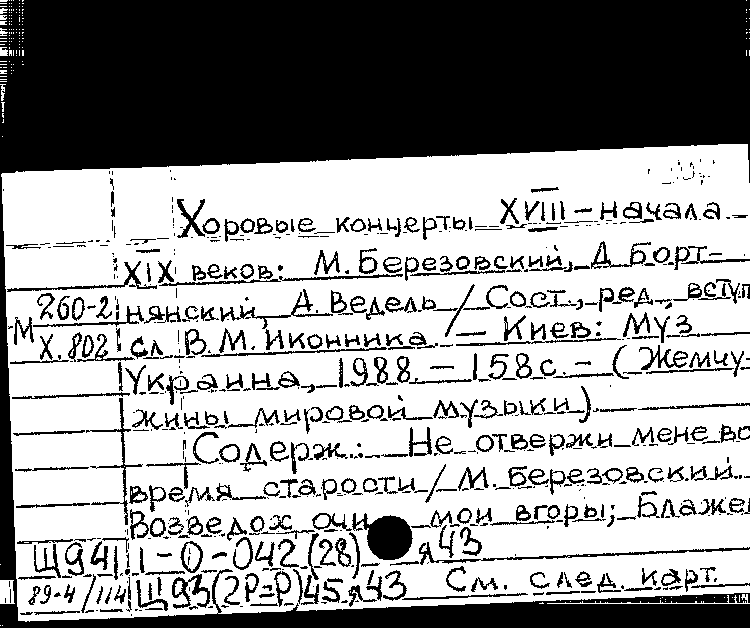 Хоровые концерты XVIII – начала
XIX веков: М. Березовский, Д. Борт-
260-2 нянский, А. Ведель / Сост., ред., вступ
М Х.802 сл В. М. Иконника. – Киев: Муз
Украина, 1988. – 158 с. – (Жемчу-
жины мировой музыки)
Содерж.: Не отвержи мене во
время старости / М. Березовский.
Возведох очи мои вгоры; Блаже
Щ941.1-0-042(28) я43
89-4/114 Щ93(2Р=Р)45я43 См. след. карт.